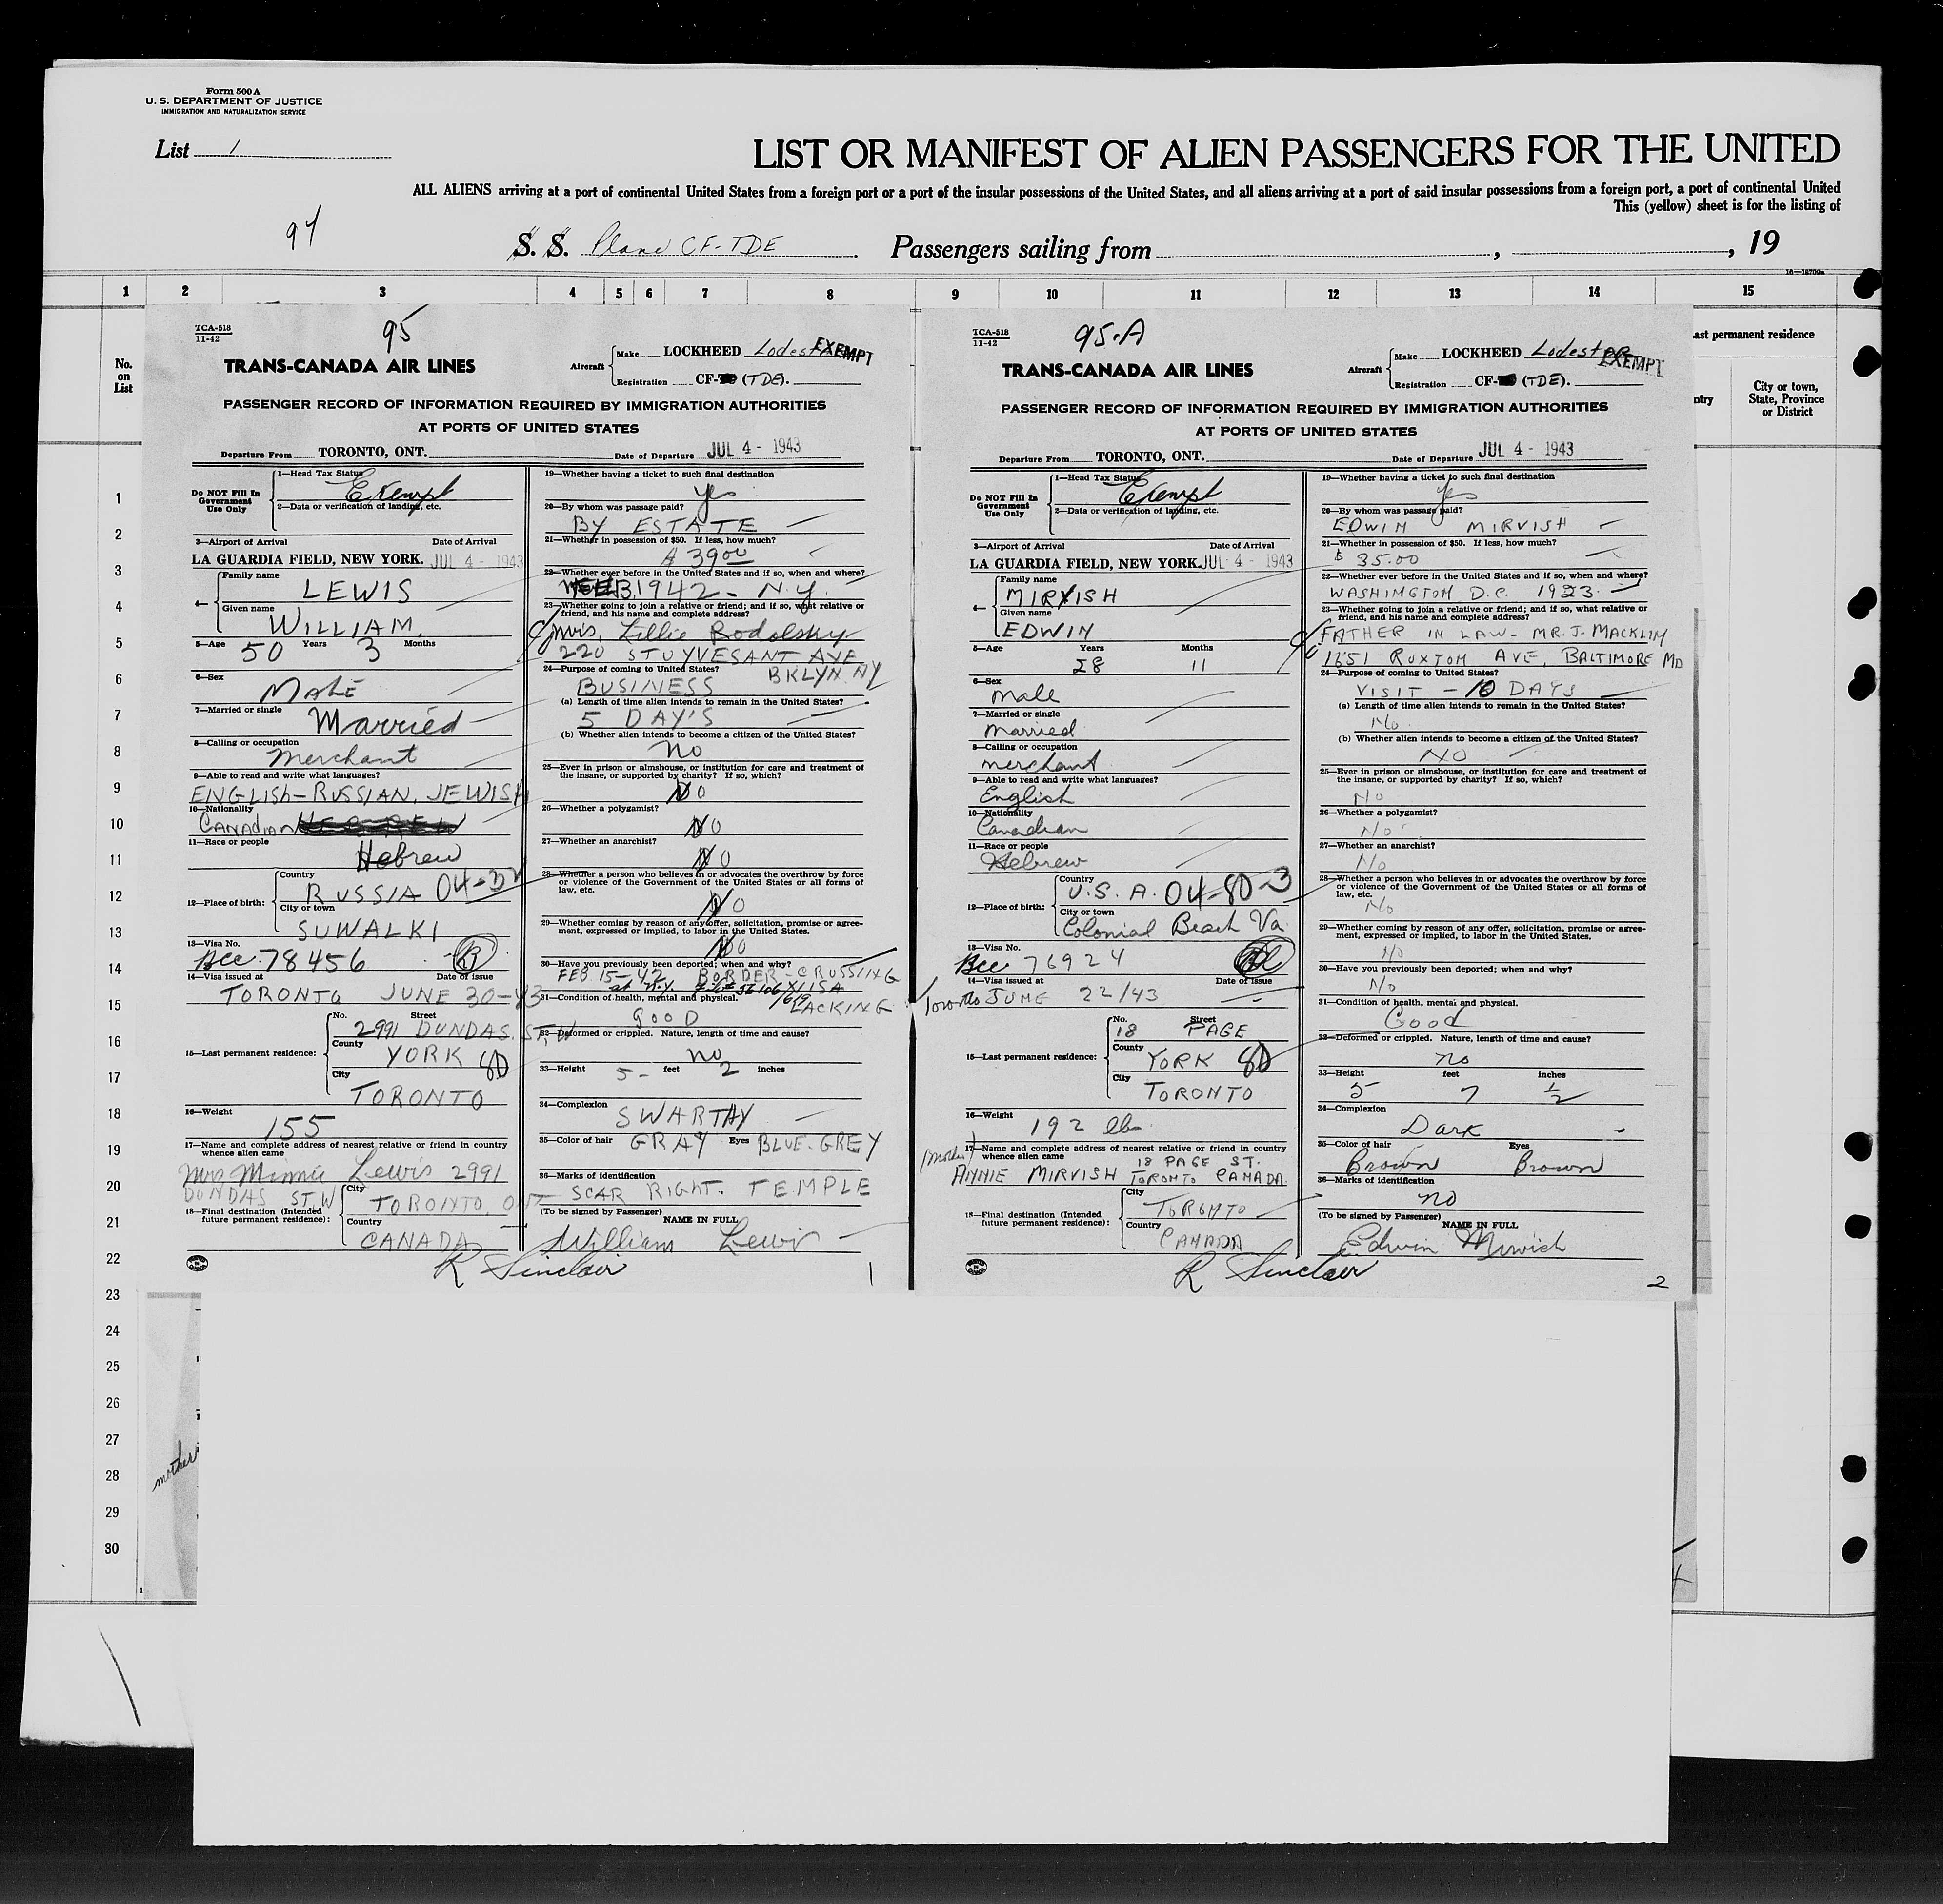 Form 500 A
U. S. DEPARTMENT OF JUSTICE
IMMIGRATION AND NATURALIZATION SERVICE
List 1
LIST OR MANIFEST OF ALIEN PASSENGERS FOR THE UNITED
ALL ALIENS arriving at a port of continental United States from a foreign port or a port of the insular possessions of the United States, and all aliens arriving at a port of said insular possessions from a foreign port, a port of continental United
This (yellow) sheet is for the listing of
94
S. S. Plane CF-TDE . Passengers sailing from , , 19
16—18709a
1 2 3 4 5 6 7 8 9 10 11 12 13 14 15
No. on List
ast permanent residence
ntry
City or town, State, Province or District
1
2
3
4
5
6
7
8
9
10
11
12
13
14
15
16
17
18
19
20
21
22
23
24
25
26
27
28
29
30
mother
TCA-518
11-42
95
TRANS-CANADA AIR LINES
Aircraft
Make LOCKHEED Lodestar
EXEMPT
Registration CF- (TDE).
PASSENGER RECORD OF INFORMATION REQUIRED BY IMMIGRATION AUTHORITIES
AT PORTS OF UNITED STATES
Departure From TORONTO, ONT. Date of Departure JUL 4 - 1943
Do NOT Fill In Government Use Only
1—Head Tax Status
Exempt
2—Data or verification of landing, etc.
3—Airport of Arrival Date of Arrival
LA GUARDIA FIELD, NEW YORK. JUL 4 - 1943
4—
Family name
LEWIS
Given name
WILLIAM.
5—Age 50 Years 3 Months
6—Sex
MALE
7—Married or single
Married
8—Calling or occupation
Merchant
9—Able to read and write what languages?
ENGLISH-RUSSIAN, JEWISH
10—Nationality
CANADIAN
11—Race or people
Hebrew
12—Place of birth:
Country
RUSSIA 04-
City or town
SUWALKI
13—Visa No.
Bcc. 78456
14—Visa issued at Date of issue
TORONTO JUNE 30-43
15—Last permanent residence:
No. Street
2991 DUNDAS. ST. W
County
YORK 80
City
TORONTO
16—Weight
155
17—Name and complete address of nearest relative or friend in country whence alien came
Mrs Minnie Lewis 2991
DUNDAS ST. W
18—Final destination (Intended future permanent residence):
City
TORONTO, ONT
Country
CANADA
R Sinclair
19—Whether having a ticket to such final destination
yes
20—By whom was passage paid?
BY ESTATE
21—Whether in possession of $50. If less, how much?
$ 39.00
22—Whether ever before in the United States and if so, when and where?
FEB. 1942 - N.Y.
23—Whether going to join a relative or friend; and if so, what relative or friend, and his name and complete address?
c/o Mrs. Lillie Bodolsky
220 STUYVESANT AVE
BKLYN NY
24—Purpose of coming to United States?
BUSINESS
(a) Length of time alien intends to remain in the United States?
5 DAY'S
(b) Whether alien intends to become a citizen of the United States?
no
25—Ever in prison or almshouse, or institution for care and treatment of the insane, or supported by charity? If so, which?
No
26—Whether a polygamist?
No
27—Whether an anarchist?
No
28—Whether a person who believes in or advocates the overthrow by force or violence of the Government of the United States or all forms of law, etc.
No
29—Whether coming by reason of any offer, solicitation, promise or agreement, expressed or implied, to labor in the United States.
No
30—Have you previously been deported; when and why?
FEB. 15-42 BORDER-CRUSSING
at N.Y. VISA
LACKING
31—Condition of health, mental and physical.
GOOD
32—Deformed or crippled. Nature, length of time and cause?
no
33—Height 5- feet 2 inches
34—Complexion
SWARTHY
35—Color of hair GRAY Eyes BLUE-GREY
36—Marks of identification
SCAR RIGHT. TEMPLE
(To be signed by Passenger)
NAME IN FULL
William Lewis
1
TCA-518
11-42
95-A
TRANS-CANADA AIR LINES
Aircraft
Make LOCKHEED Lodestar
EXEMPT
Registration CF- (TDE).
PASSENGER RECORD OF INFORMATION REQUIRED BY IMMIGRATION AUTHORITIES
AT PORTS OF UNITED STATES
Departure From TORONTO, ONT. Date of Departure JUL 4 - 1943
Do NOT Fill In Government Use Only
1—Head Tax Status
Exempt
2—Data or verification of landing, etc.
3—Airport of Arrival Date of Arrival
LA GUARDIA FIELD, NEW YORK. JUL 4 - 1943
4—
Family name
MIRVISH
Given name
EDWIN
5—Age Years Months
28 11
6—Sex
Male
7—Married or single
Married
8—Calling or occupation
Merchant
9—Able to read and write what languages?
English
10—Nationality
Canadian
11—Race or people
Hebrew
12—Place of birth:
Country
U.S.A. 04-80-3
City or town
Colonial Beach Va
13—Visa No.
Bcc 76924
14—Visa issued at Date of issue
Toronto JUNE 22/43
15—Last permanent residence:
No. Street
18 PAGE
County
YORK 80
City
TORONTO
16—Weight
192 lbs.
17—Name and complete address of nearest relative or friend in country whence alien came
(mother) ANNIE MIRVISH 18 PAGE ST. TORONTO CANADA.
18—Final destination (Intended future permanent residence):
City
TORONTO
Country
CANADA
R Sinclair
19—Whether having a ticket to such final destination
yes
20—By whom was passage paid?
EDWIN MIRVISH
21—Whether in possession of $50. If less, how much?
$ 35.00
22—Whether ever before in the United States and if so, when and where?
WASHINGTON D.C. 1923.
23—Whether going to join a relative or friend; and if so, what relative or friend, and his name and complete address?
c/o FATHER IN LAW - MR. J. MACKLIN
1651 RUXTON AVE, BALTIMORE MD
24—Purpose of coming to United States?
VISIT - 10 DAYS
(a) Length of time alien intends to remain in the United States?
No.
(b) Whether alien intends to become a citizen of the United States?
NO
25—Ever in prison or almshouse, or institution for care and treatment of the insane, or supported by charity? If so, which?
No
26—Whether a polygamist?
No
27—Whether an anarchist?
No
28—Whether a person who believes in or advocates the overthrow by force or violence of the Government of the United States or all forms of law, etc.
No
29—Whether coming by reason of any offer, solicitation, promise or agreement, expressed or implied, to labor in the United States.
No
30—Have you previously been deported; when and why?
No
31—Condition of health, mental and physical.
Good
32—Deformed or crippled. Nature, length of time and cause?
no
33—Height feet inches
5 7 1/2
34—Complexion
Dark
35—Color of hair Eyes
Brown Brown
36—Marks of identification
no
(To be signed by Passenger)
NAME IN FULL
Edwin Mirvish
2